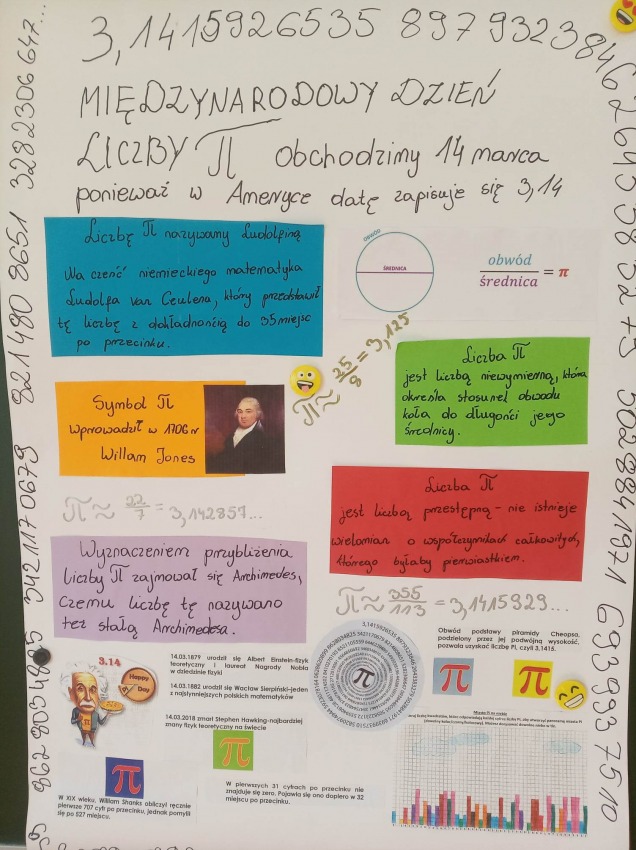 3,1415926535 8979323846 26433832 795 02884 1971 693993 7510
MIĘDZYNARODOWY DZIEŃ
LICZBY π Obchodzimy 14 marca
ponieważ w Ameryce datę zapisuje się 3,14
Liczbę π nazywamy Ludolfiną
Na cześć niemieckiego matematyka
Ludolfa van Ceulena, który przedstawił
tę liczbę z dokładnością do 35 miejsc
po przecinku.
OBWÓD
ŚREDNICA
obwód
średnica
= π
π ≈ 25/8 = 3,125
Liczba π
jest liczbą niewymierną, która
określa stosunek obwodu
koła do długości jego
średnicy.
Symbol π
wprowadził w 1706 r
Willam Jones
π ≈ 22/7 = 3,142857...
Liczba π
jest liczbą przestępną - nie istnieje
wielomian o współczynnikach całkowitych,
którego byłaby pierwiastkiem.
π ≈ 355/113 = 3,1415929...
Wyznaczeniem przybliżenia
liczby π zajmował się Archimedes,
czemu liczbę tę nazywano
też stałą Archimedesa.
3.14
Happy
π Day
14.03.1879 urodził się Albert Einstein-fizyk
teoretyczny i laureat Nagrody Nobla
w dziedzinie fizyki
14.03.1882 urodził się Wacław Sierpiński-jeden
z najsłynniejszych polskich matematyków
14.03.2018 zmarł Stephen Hawking-najbardziej
znany fizyk teoretyczny na świecie
π
Obwód podstawy piramidy Cheopsa,
podzielony przez jej podwójną wysokość,
pozwala uzyskać liczbę Pi, czyli 3.1415.
π
π
π
π
W XIX wieku, William Shanks obliczył ręcznie
pierwsze 707 cyfr po przecinku, jednak pomylił
się po 527 miejscu.
W pierwszych 31 cyfrach po przecinku nie
znajduje się zero. Pojawia się ono dopiero w 32
miejscu po przecinku.
862 803 4825 342 117 0679 821 480 8651 3282306647...